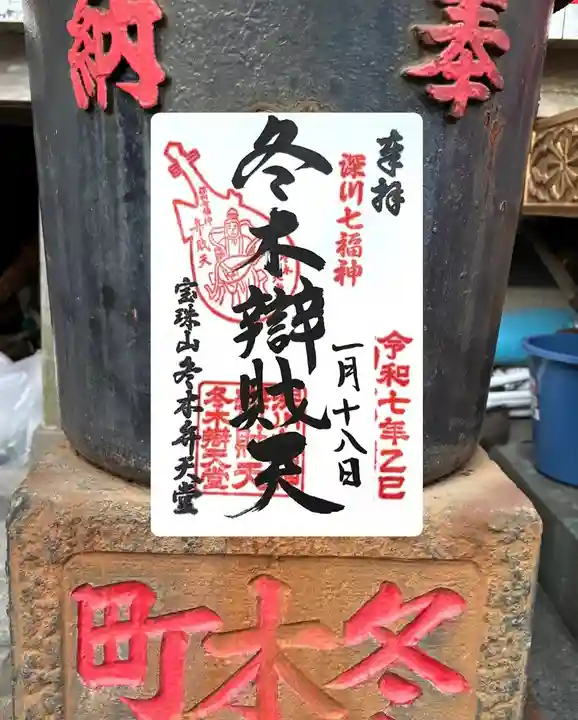 奉納
奉拝
深川七福神
令和七年乙巳
一月十八日
冬木辯財天
弁財天
冬木辯天堂
宝珠山冬木弁天堂
冬木町